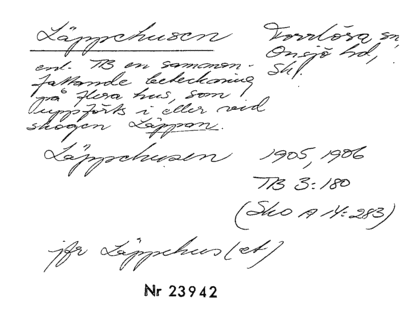 Läppehusen
Torrlösa sn,
Onsjö hd,
Sk.
enl. TB en samman-
fattande beteckning
på flera hus, som
uppförts i eller vid
skogen Läppan.
Läppehusen 1905, 1906
TB 3:180
(Sko A IV:283)
jfr Läppehus(et)
Nr 23942